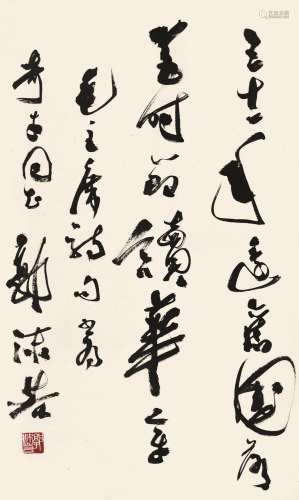 三十一年還舊國落
花時節讀華章
毛主席詩句書為
同志 郭沫若